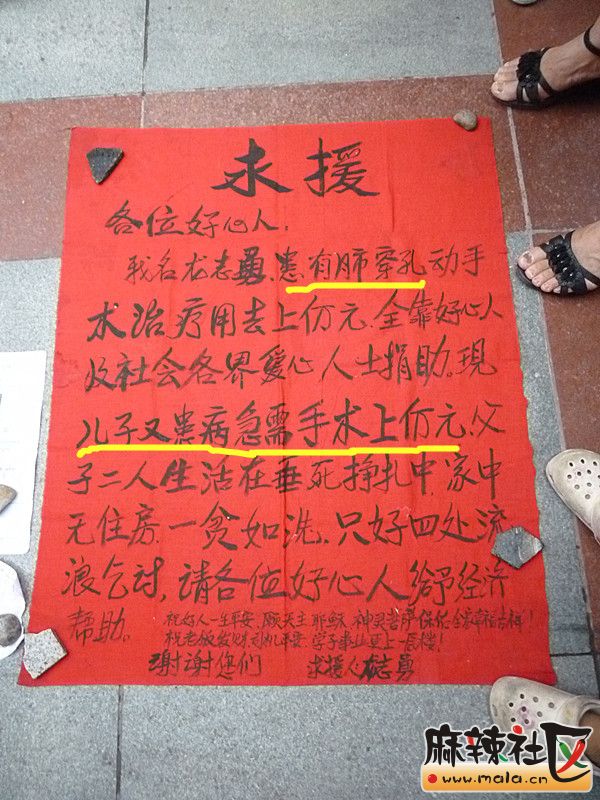 求援
各位好心人：
我名龙志勇、患有肺穿孔动手
术治疗用去上仂元.全靠好心人
及社会各界爱心人士捐助。現
儿子又患病急需手术上仂元.父
子二人生活在垂死挣扎中.家中
无住房.一贫如洗.只好四处流
浪乞讨,请各位好心人给予经济
帮助。
祝好人一生平安、愿天主耶稣、神灵菩萨保佑全家幸福吉祥！
祝老板发财.司机平安、学子事业更上一层楼！
谢谢您们 求援人 志勇
麻辣社区
www.mala.cn